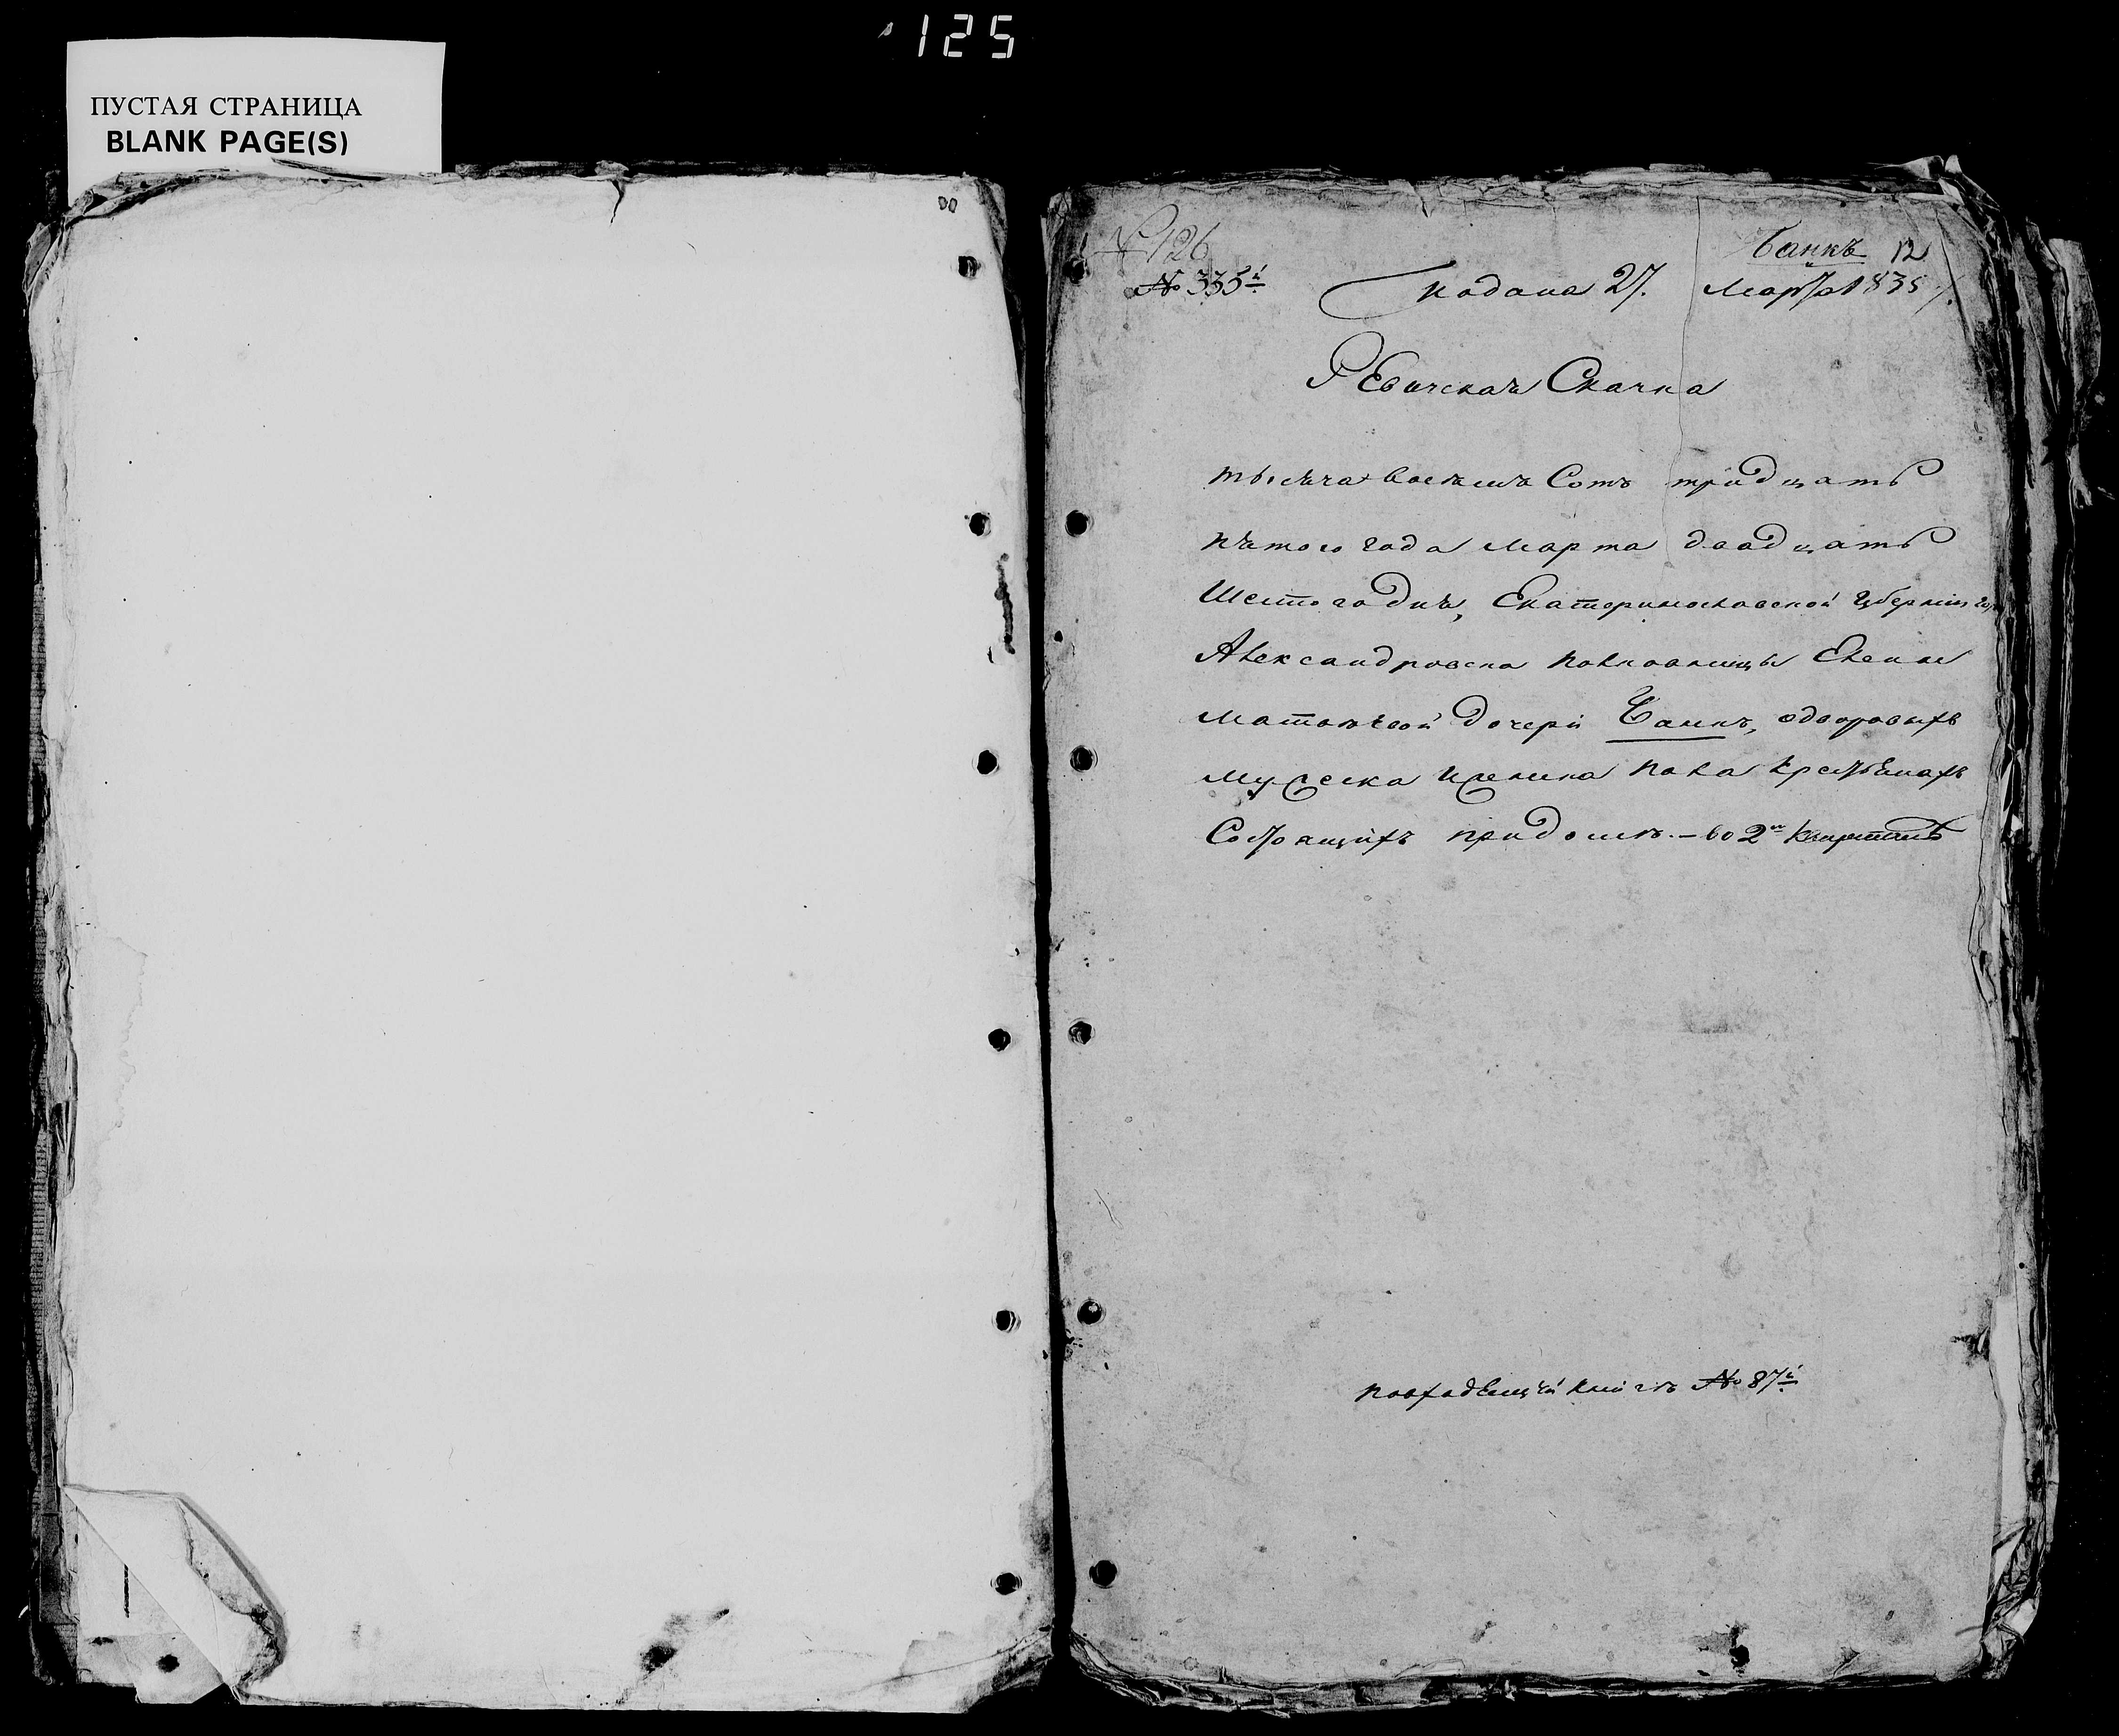 125
ПУСТАЯ СТРАНИЦА
BLANK PAGE(S)
№ 126
Банкъ 12
№ 335й
подана 27. Марта 1835
Ревизская Скаска
тысяча восемъ Сотъ тридцать
пятого года марта двадцать
Шестого дня, Екатеринославской губерніи
Александровска полковницы Елены
матвѣевой дочери Банкъ, одворовыхъ
мужеска и женска пола крестьянахъ
Состоящихъ придомѣ. — во 2м Кварталѣ
повходящей книгѣ № 87й